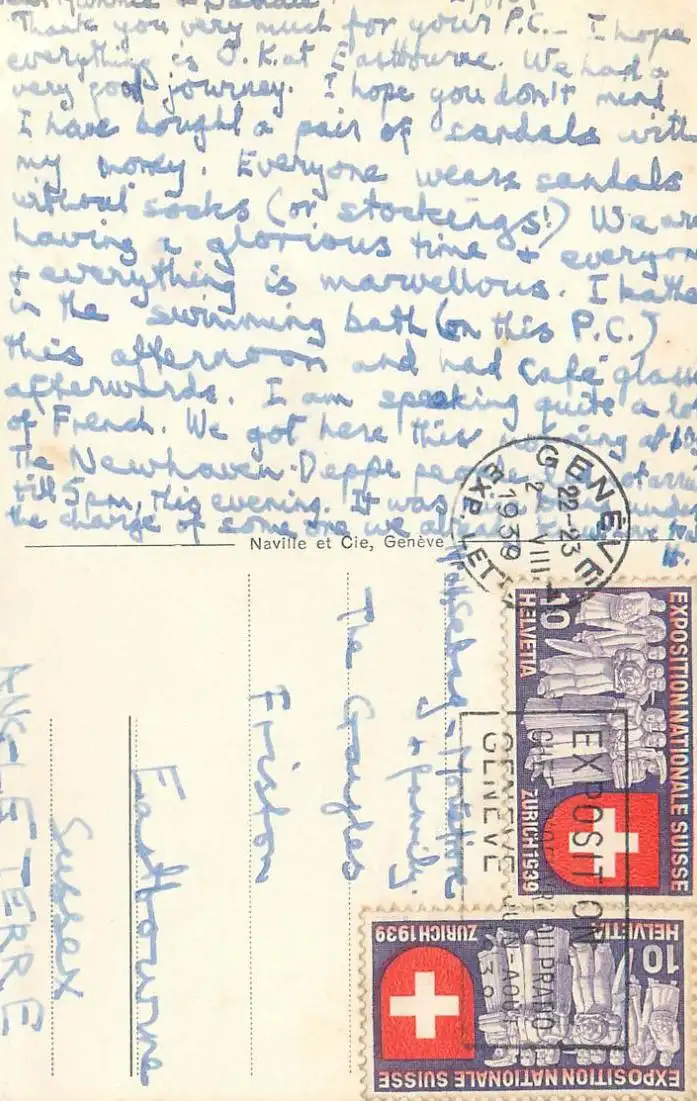 Thank you very much for your P.C. - I hope
everything is O.K. at Eastbourne. We had a
very good journey. I hope you don't mind
I have bought a pair of sandals with
my money. Everyone wears sandals
without socks (or stockings!) We are
having a glorious time & everyone
& everything is marvellous. I bathed
in the swimming bath (on this P.C.)
this afternoon and had café glacé
afterwards. I am speaking quite a lot
of French. We got here this morning at
The Newhaven-Dieppe people
till 5pm, this evening. It was
the charge of some one we already
it.
Naville et Cie, Genève
GENÈVE
22-23
2 VIII
1939
EXP. LETT
& family.
The Gables
Friston
Eastbourne
Sussex
ANGLETERRE
EXPOSITION NATIONALE SUISSE
10
HELVETIA
ZURICH 1939
EXPOSITION
DU PRADO
GENÈVE JUIN-AOUT
39
EXPOSITION NATIONALE SUISSE
10
HELVETIA
ZURICH 1939